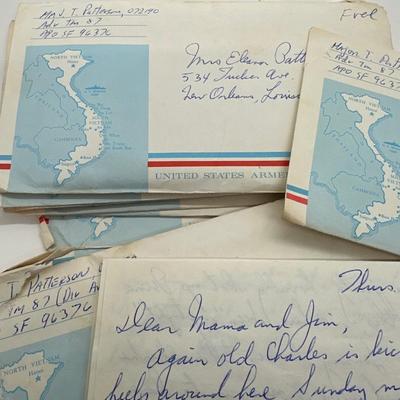 Maj T. Patterson,
Adv Tm 87
APO SF 96376
Free
Mrs Eleanor Patt
534 Tucker Ave.
New Orleans, Louis
NORTH VIETNAM
Hanoi
SOUTH VIETNAM
UNITED STATES ARME
Major T. Pat
Adv Tm 87
APO SF 9637
NORTH VIETNAM
Hanoi
T. PATTERSON
TM 87 (Div A
SF 96376
NORTH VIETNAM
Hanoi
Thurs.
Dear Mama and Jim,
Again old Charles is
around here Sunday m